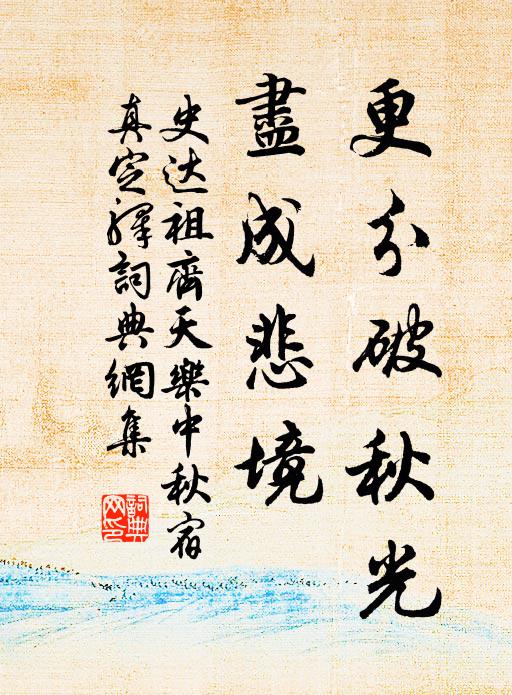 更分破秋光
盡成悲境
史达祖齊天樂中秋宿
真定驛詞典網集
詞典
网印